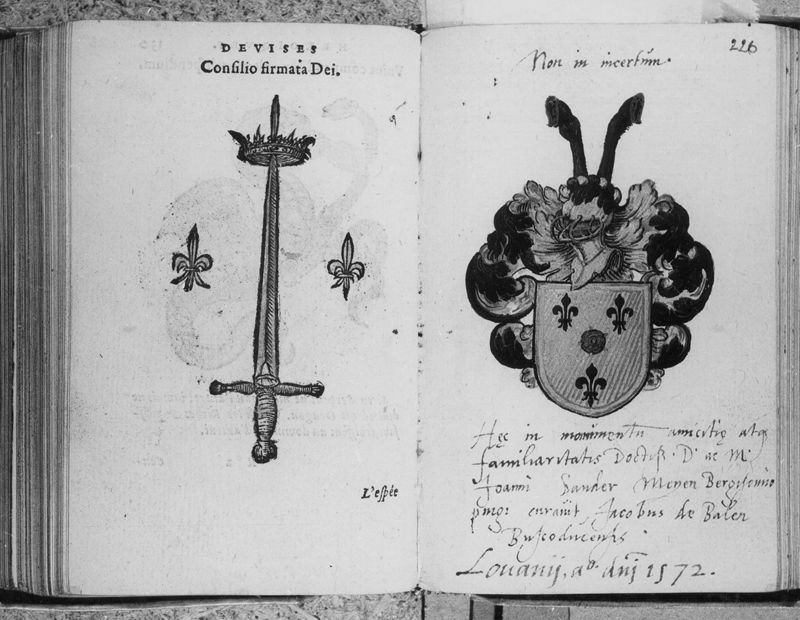 DEVISES
Consilio firmata Dei.
L'espée
226
Non in incertum.
Hęc in monimentū amicitię atq
familiaritatis Doctiss. D. ac M.
Joanni Sander Meyen
pingi curavit Jacobus de Baker
Buscoducensis.
Lovanij, aº. dnj 1572.